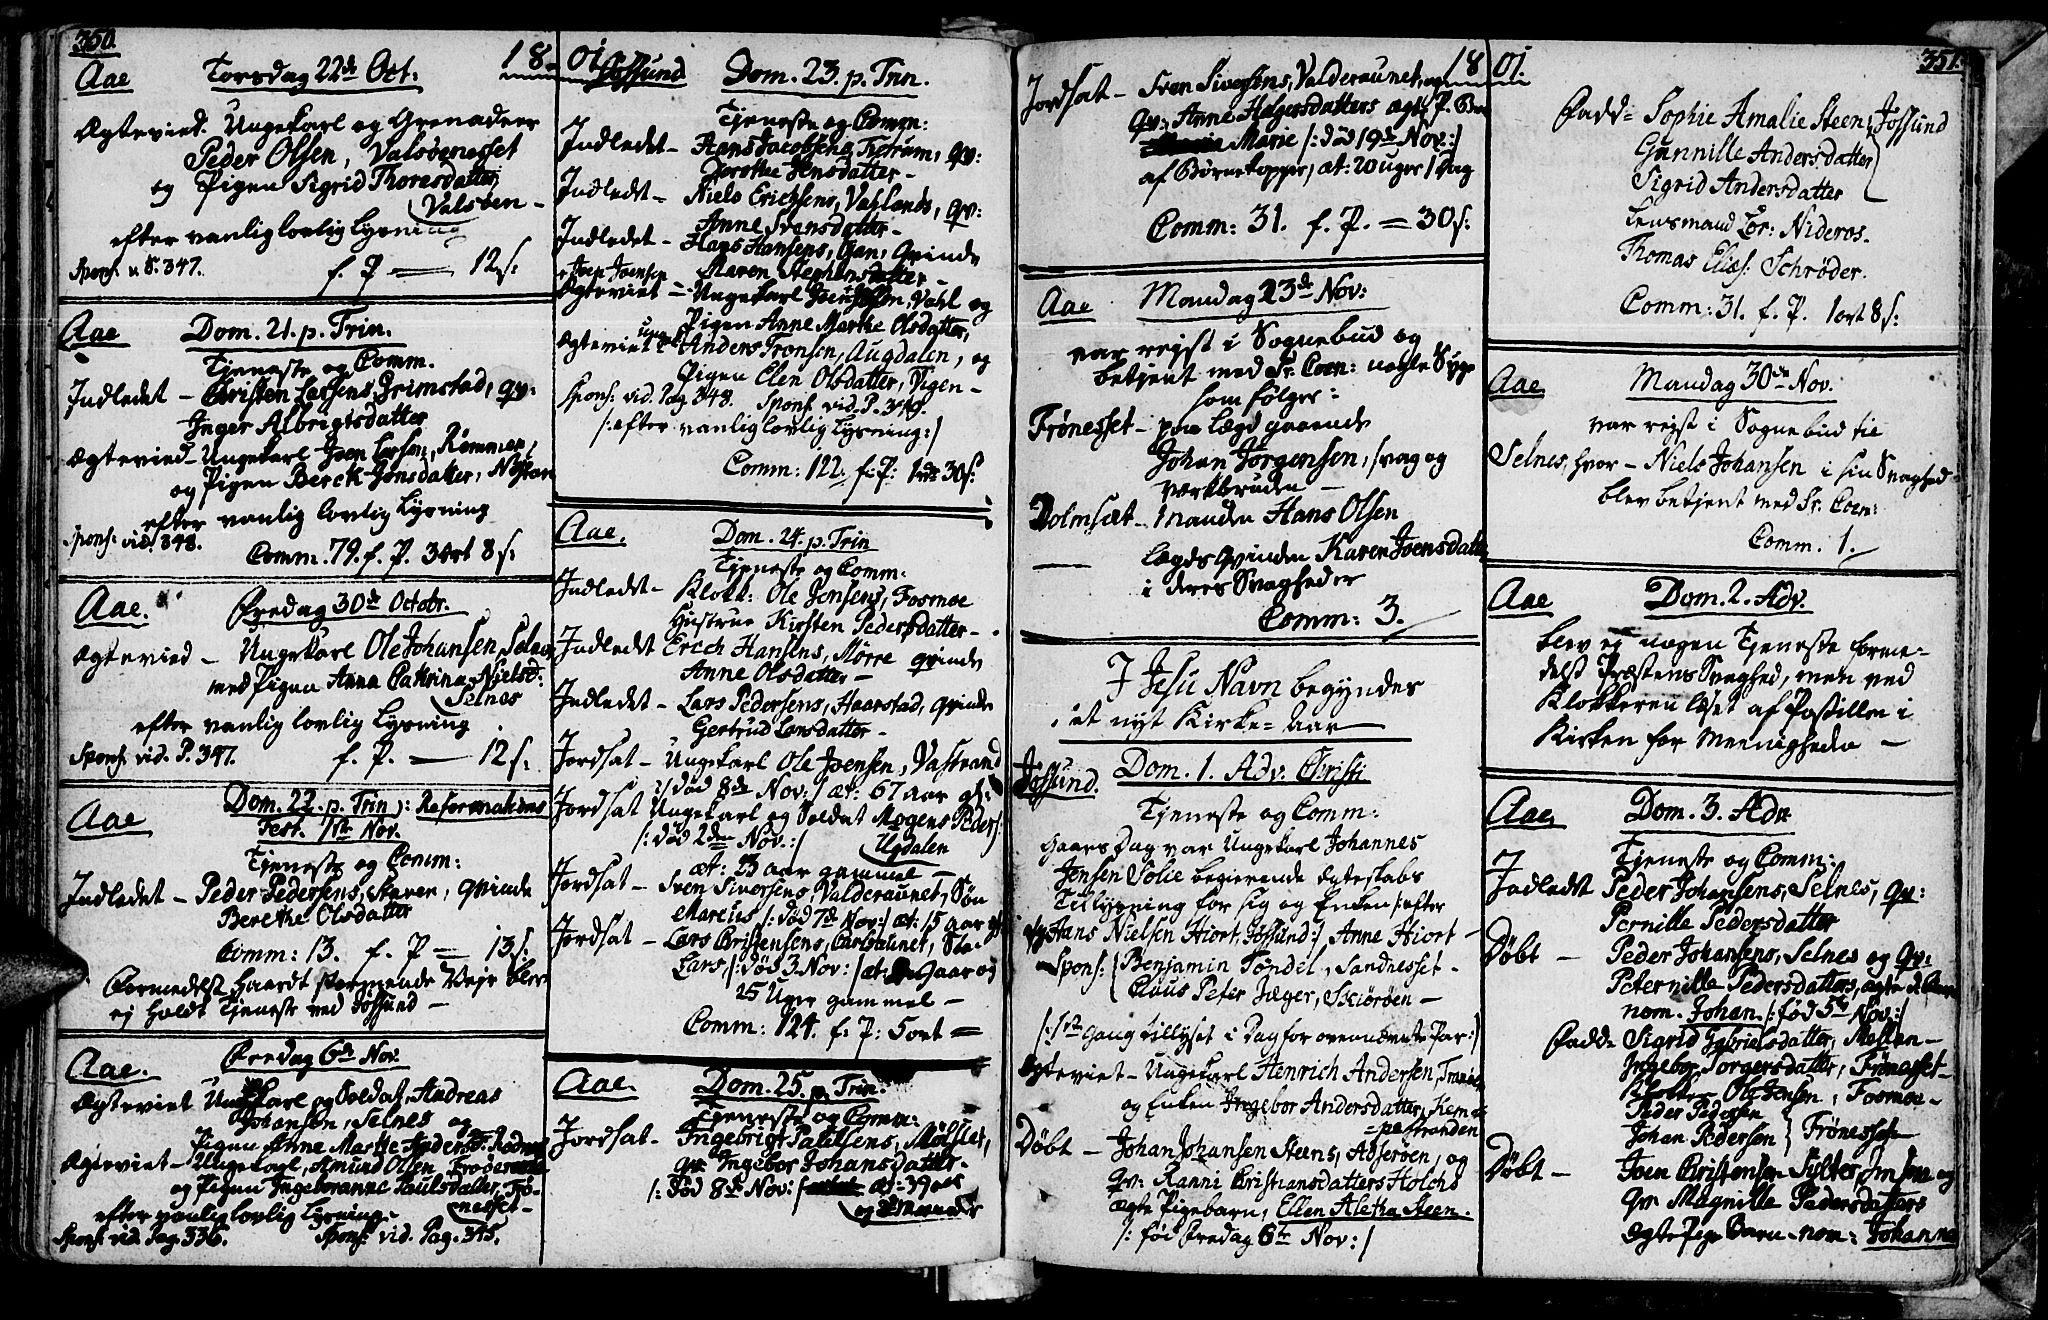 350.
18
Aae Torsdag 22de Oct:
Ægteviede Ungekarl og Grenadeer
Peder Olsen, Valsøenesset
og Pigen Sigrid Thoresdatter
Valsøen
efter vanlig lovlig Lysning
Spons: v. P. 347. f. P = 12 s:
Aae Dom. 21. p. Trin.
Tjeneste og Comm.
Indledet - Christen Larsens, Grimstad, qv:
Inger Albrigtsdatter
Ægtevied - Ungekarl Joen Larsen, Rømmen,
og Pigen Berek Jonsdatter,
efter vanlig lovlig Lysning
Spons: vid. 348.
Comm. 79. f. P. 3 ort 8 s:
Aae. Fredag 30de Octobr.
Ægtevied - Ungekarl Ole Johansen, Selnes,
med Pigen Anna Cathrina Nielsd:
Selnes
efter vanlig lovlig Lysning
Spons: vid. P. 347. f. P. - 12 s.
Aae Dom. 22. p. Trin): Reformations
Fest. 1ste Nov.
Tjeneste og Comm:
Indledet - Peder Pedersens, qvinde
Berethe Olsdatter
Comm: 13. f. P = 13 s.
Formedelst haardt stormende Vejr blev
ej holdt Tjeneste ved Jøssund -
Aae. Fredag 6te Nov.
Ægteviet Ungekarl og Soldat, Andreas
Johansen, Selnes og
Pigen Anne Marthe
Ægteviet - Ungekarl, Amund Olsen,
og Pigen Ingeboranne Paulsdatter, Frø-
nesset -
efter vanlig lovlig Lysning -
Spons: vid. Pag. 336. Spons: vid. Pag. 345.
01.
Jøssund Dom. 23. p. Trin.
Tjeneste og Comm:
Indledet - Hans Jacobsens, qv:
Dorthe Jensdatter -
Indledt - Niels Erichsens, Vahlands, qv:
Anne Svensdatter -
Indledet - Hans Hansens, Gan, Qvinde
Maren Stephensdatter -
Joen Joensen
Ægteviet - Ungekarl Vahl og
Pigen Anne Marthe Olsdatter,
Ægteviet Anders Tronsen, Augdalen, og
Pigen Elen Olsdatter, Vigen -
Spons: vid. Pag 348. Spons: vid. P. 349.
/: efter vanlig lovlig Lysning :/
Comm: 122. f. P: 30 s.
Aae. Dom. 24. p. Trin
Tjeneste og Comm:
Indledet - Klokk: Ole Jensens, Fosmoe
Hustrue Kirsten Pedersdatter -
Indledet Erich Hansens, Mørre qvinde
Anne Olsdatter -
Indledet - Lars Pedersens, Haarstad, Qvinde
Gertrud Larsdatter -
Jordsat - Ungekarl Ole Joensen, Vastrand
/: død 8de Nov: / æt: 67 aar
Jordsat Ungekarl og Soldat Mogens Peders:
/: død 2den Nov. :/ Ugdalen
æt: 23 aar gammel -
Jordsat - Sven Siversens, Valderaunet, Søn
Marcus /: død 7de Nov :/ æt: 15 aar
Jordsat - Lars Christensens, Carlsaunet, Søn
Lars /: død 3. Nov: / æt: 9 aar og
25 Uger gammel -
Comm: 124. f. P: 5 ort =
Aae. Dom. 25. p. Trin.
Tjeneste og Comm:
Jordsat - Ingebrigt Paulsens, Mølslet,
qv: Ingebor Johansdatter -
/: død 8de Nov: / æt: 39 aar
og 2 Maaneder
18
Jordsat - Sven Siversens, Valderaunet, og
qv: Anne Holgersdatters ægte P. Barn
Marie /: død 19de Nov: /
af Børnekopper, æt: 20 uger 1 Dag
Comm: 31. f. P. = 30 s:
Aae Mandag 23de Nov:
var rejst i Sognebud og
betjent med Sr. Coen: nogle Syge
som følger:
Frønesset - paa Lægd gaaende
Johan Jørgensen, svag og
værkbruden -
Dolmsæt - Manden Hans Olsen
Lægdsqvinden Karen Joensdatter
i deres Svagheder
Comm: 3.
I Jesu Navn begyndes
et nyt Kirke-Aar
Jøssund. Dom. 1. Adv. Christi
Tjeneste og Comm:
Jensen Solie begierende Ægteskabs
Tillysning for sig og Enken /: efter
Hans Nielsen Hiort, Jøssund :/ Anne Hiort -
Spons: Benjamin Tøndel, Sandnesset -
Claus Peter Jæger, Skiørøen -
/: 1ste Gang tillyset i Dag for ovennævnte Par :/
Ægteviet - Ungekarl Henrich Andersen,
og Enken Ingebor Andersdatter, Kem-
pestranden
Døbt - Johan Johansen Steens, Adserøen, og
qv: Ranni Christiansdatters Holchs
ægte Pigebarn, Ellen Aletha Steen.
/: fød Fredag 6te Nov: /
01.
351.
Fadd= Sophie Amalie Steen, Jøssund
Gunnille Andersdatter
Sigrid Andersdatter
Lensmand Lor: Nideros.
Thomas Elias: Schrøder.
Comm: 31. f. P. 1 ort 8 s:
Aae Mandag 30de Nov.
var rejst i Sognebud til
Selnes, hvor - Niels Johansen i sin Svaghed
blev betjent med Sr. Coen:
Comm. 1.
Aae Dom. 2. Adv.
blev ej nogen Tjeneste forme-
delst Præstens Svaghed, men ved
Klokkeren læset af Postillen i
Kirken for Meenigheden -
Aae. Dom. 3. Adv.
Tjeneste og Comm:
Indledet Peder Johansens, Selnes, qv:
Pernille Pedersdatter
Døbt - Peder Johansens, Selnes og qv:
Peternille Pedersdatters, ægte
nom. Johan. /: fød 5te Nov: /
Fadd= Sigrid Gabrielsdatter, Mellan -
Ingebor Jørgensdatter, Frønesset -
Klokker Ole Jensen, Fosmoe -
Peder Pedersen
Johan Pedersen Frønesset
Døbt - Joen Christensen og
qv: Magnille Pedersdatters
ægte Pige Barn - nom: Johanna